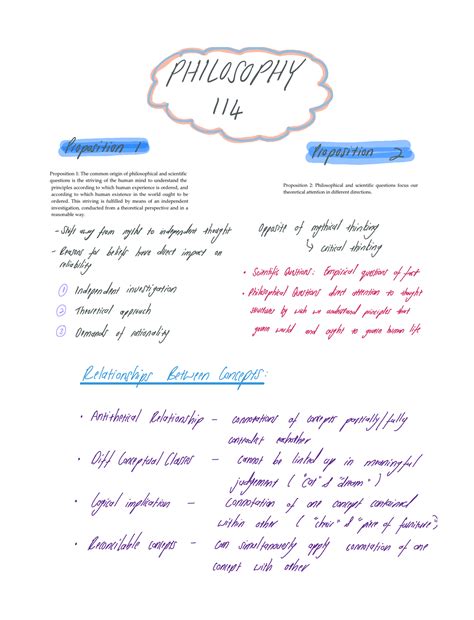 PHILOSOPHY
114
Proposition 1
Proposition 1: The common origin of philosophical and scientific
questions is the striving of the human mind to understand the
principles according to which human experience is ordered, and
according to which human existence in the world ought to be
ordered. This striving is fulfilled by means of an independent
investigation, conducted from a theoretical perspective and in a
reasonable way.
- Shift away from myths to independent thought
- Reasons for beliefs have direct impact on
reliability
① Independent investigation
② Theoretical approach
③ Demands of rationality
Proposition 2
Proposition 2: Philosophical and scientific questions focus our
theoretical attention in different directions.
Opposite of mythical thinking
↳ critical thinking
• Scientific Questions: Empirical questions of fact
• Philosophical Questions direct attention to thought
structures by wich we understand principles that
govern world and ought to govern human life
Relationships Between Concepts:
• Antithetical Relationship - connotations of concepts partially/fully
contradict eachother
• Diff Conceptual Classes - cannot be linked up in meaningful
judgement ("cat" & "dream")
• Logical implication - Connotation of one concept contained
within other ("chair" & "piece of furniture")
• Reconcilable concepts - Can simultaneously apply connotation of one
concept with other